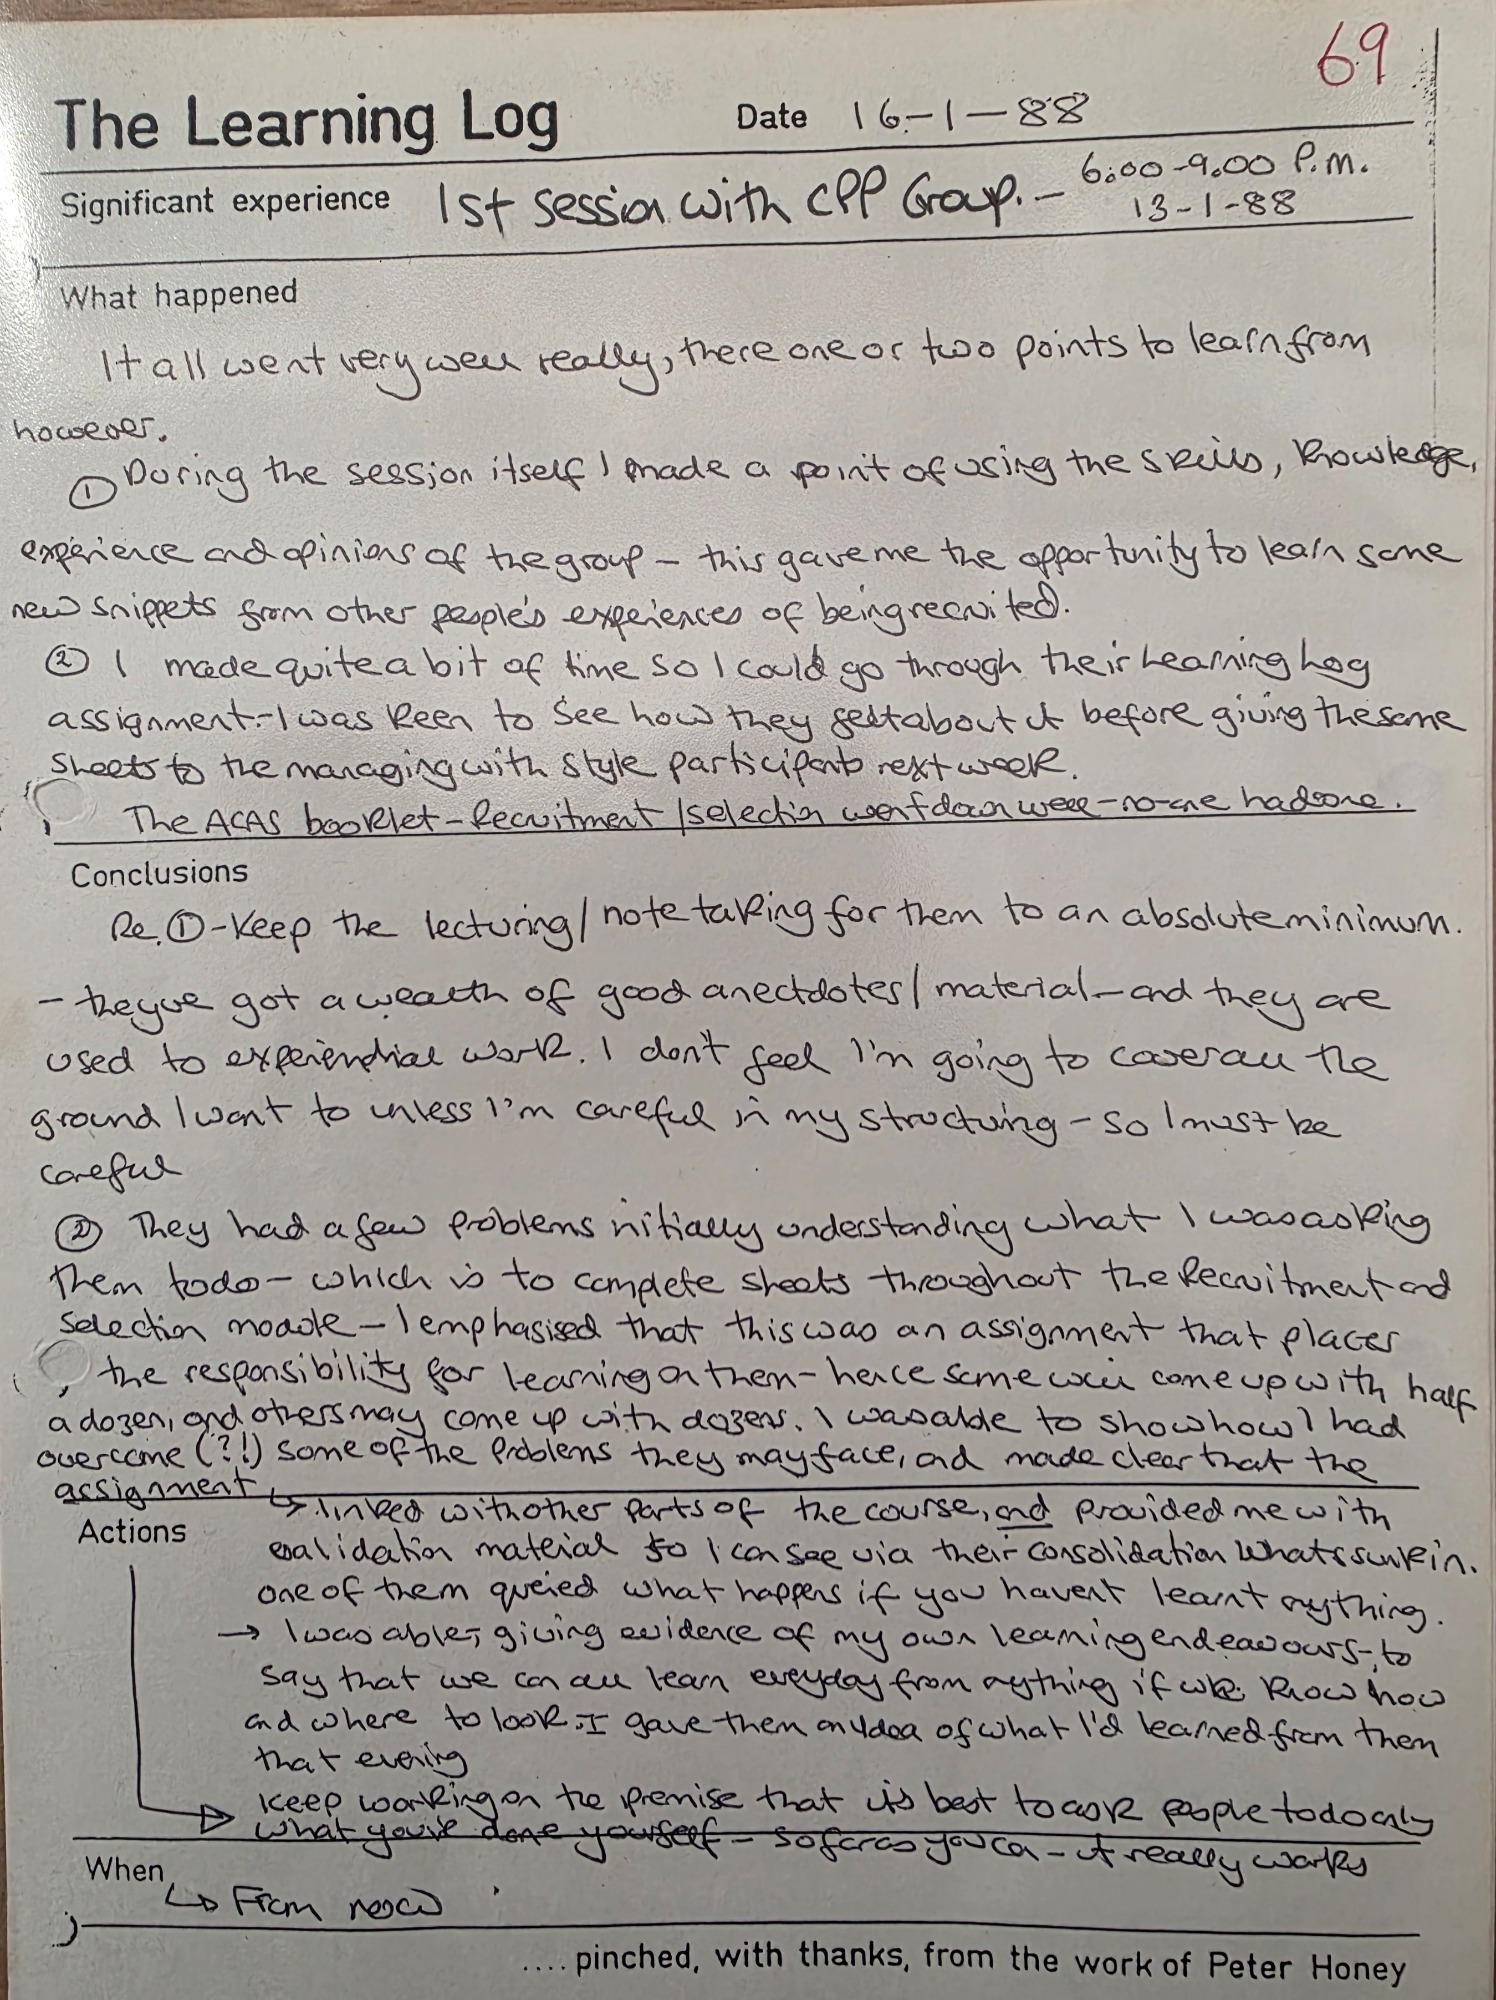 69
The Learning Log Date 16-1-88
Significant experience 1st session with CPP Group. - 6.00-9.00 P.M.
13-1-88
What happened
It all went very well really, there one or two points to learn from
however.
① During the session itself I made a point of using the skills, knowledge,
experience and opinions of the group - this gave me the opportunity to learn some
new snippets from other people's experiences of being recruited.
② I made quite a bit of time so I could go through their Learning Log
assignment - I was keen to see how they felt about it before giving the same
sheets to the managing with style participants next week.
The ACAS booklet - Recruitment/selection went down well - no-one had one.
Conclusions
Re. ① - Keep the lecturing/note taking for them to an absolute minimum.
- they've got a wealth of good anectdotes/material - and they are
used to experiential work. I don't feel I'm going to cover all the
ground I want to unless I'm careful in my structuring - so I must be
careful
② They had a few problems initially understanding what I was asking
them to do - which is to complete sheets throughout the Recruitment and
Selection module - I emphasised that this was an assignment that places
the responsibility for learning on them - hence some will come up with half
a dozen, and others may come up with dozens. I was able to show how I had
overcome (?!) some of the problems they may face, and made clear that the
assignment
↳ linked with other parts of the course, and provided me with
Actions
validation material so I can see via their consolidation whats sunk in.
one of them queried what happens if you havent learnt anything.
→ I was able, giving evidence of my own learning endeavours, to
say that we can all learn everyday from anything if we know how
and where to look. I gave them an idea of what I'd learned from them
that evening
Keep working on the premise that it's best to ask people to do only
what you've done yourself - so far as you can - it really works
When
↳ From now
.... pinched, with thanks, from the work of Peter Honey